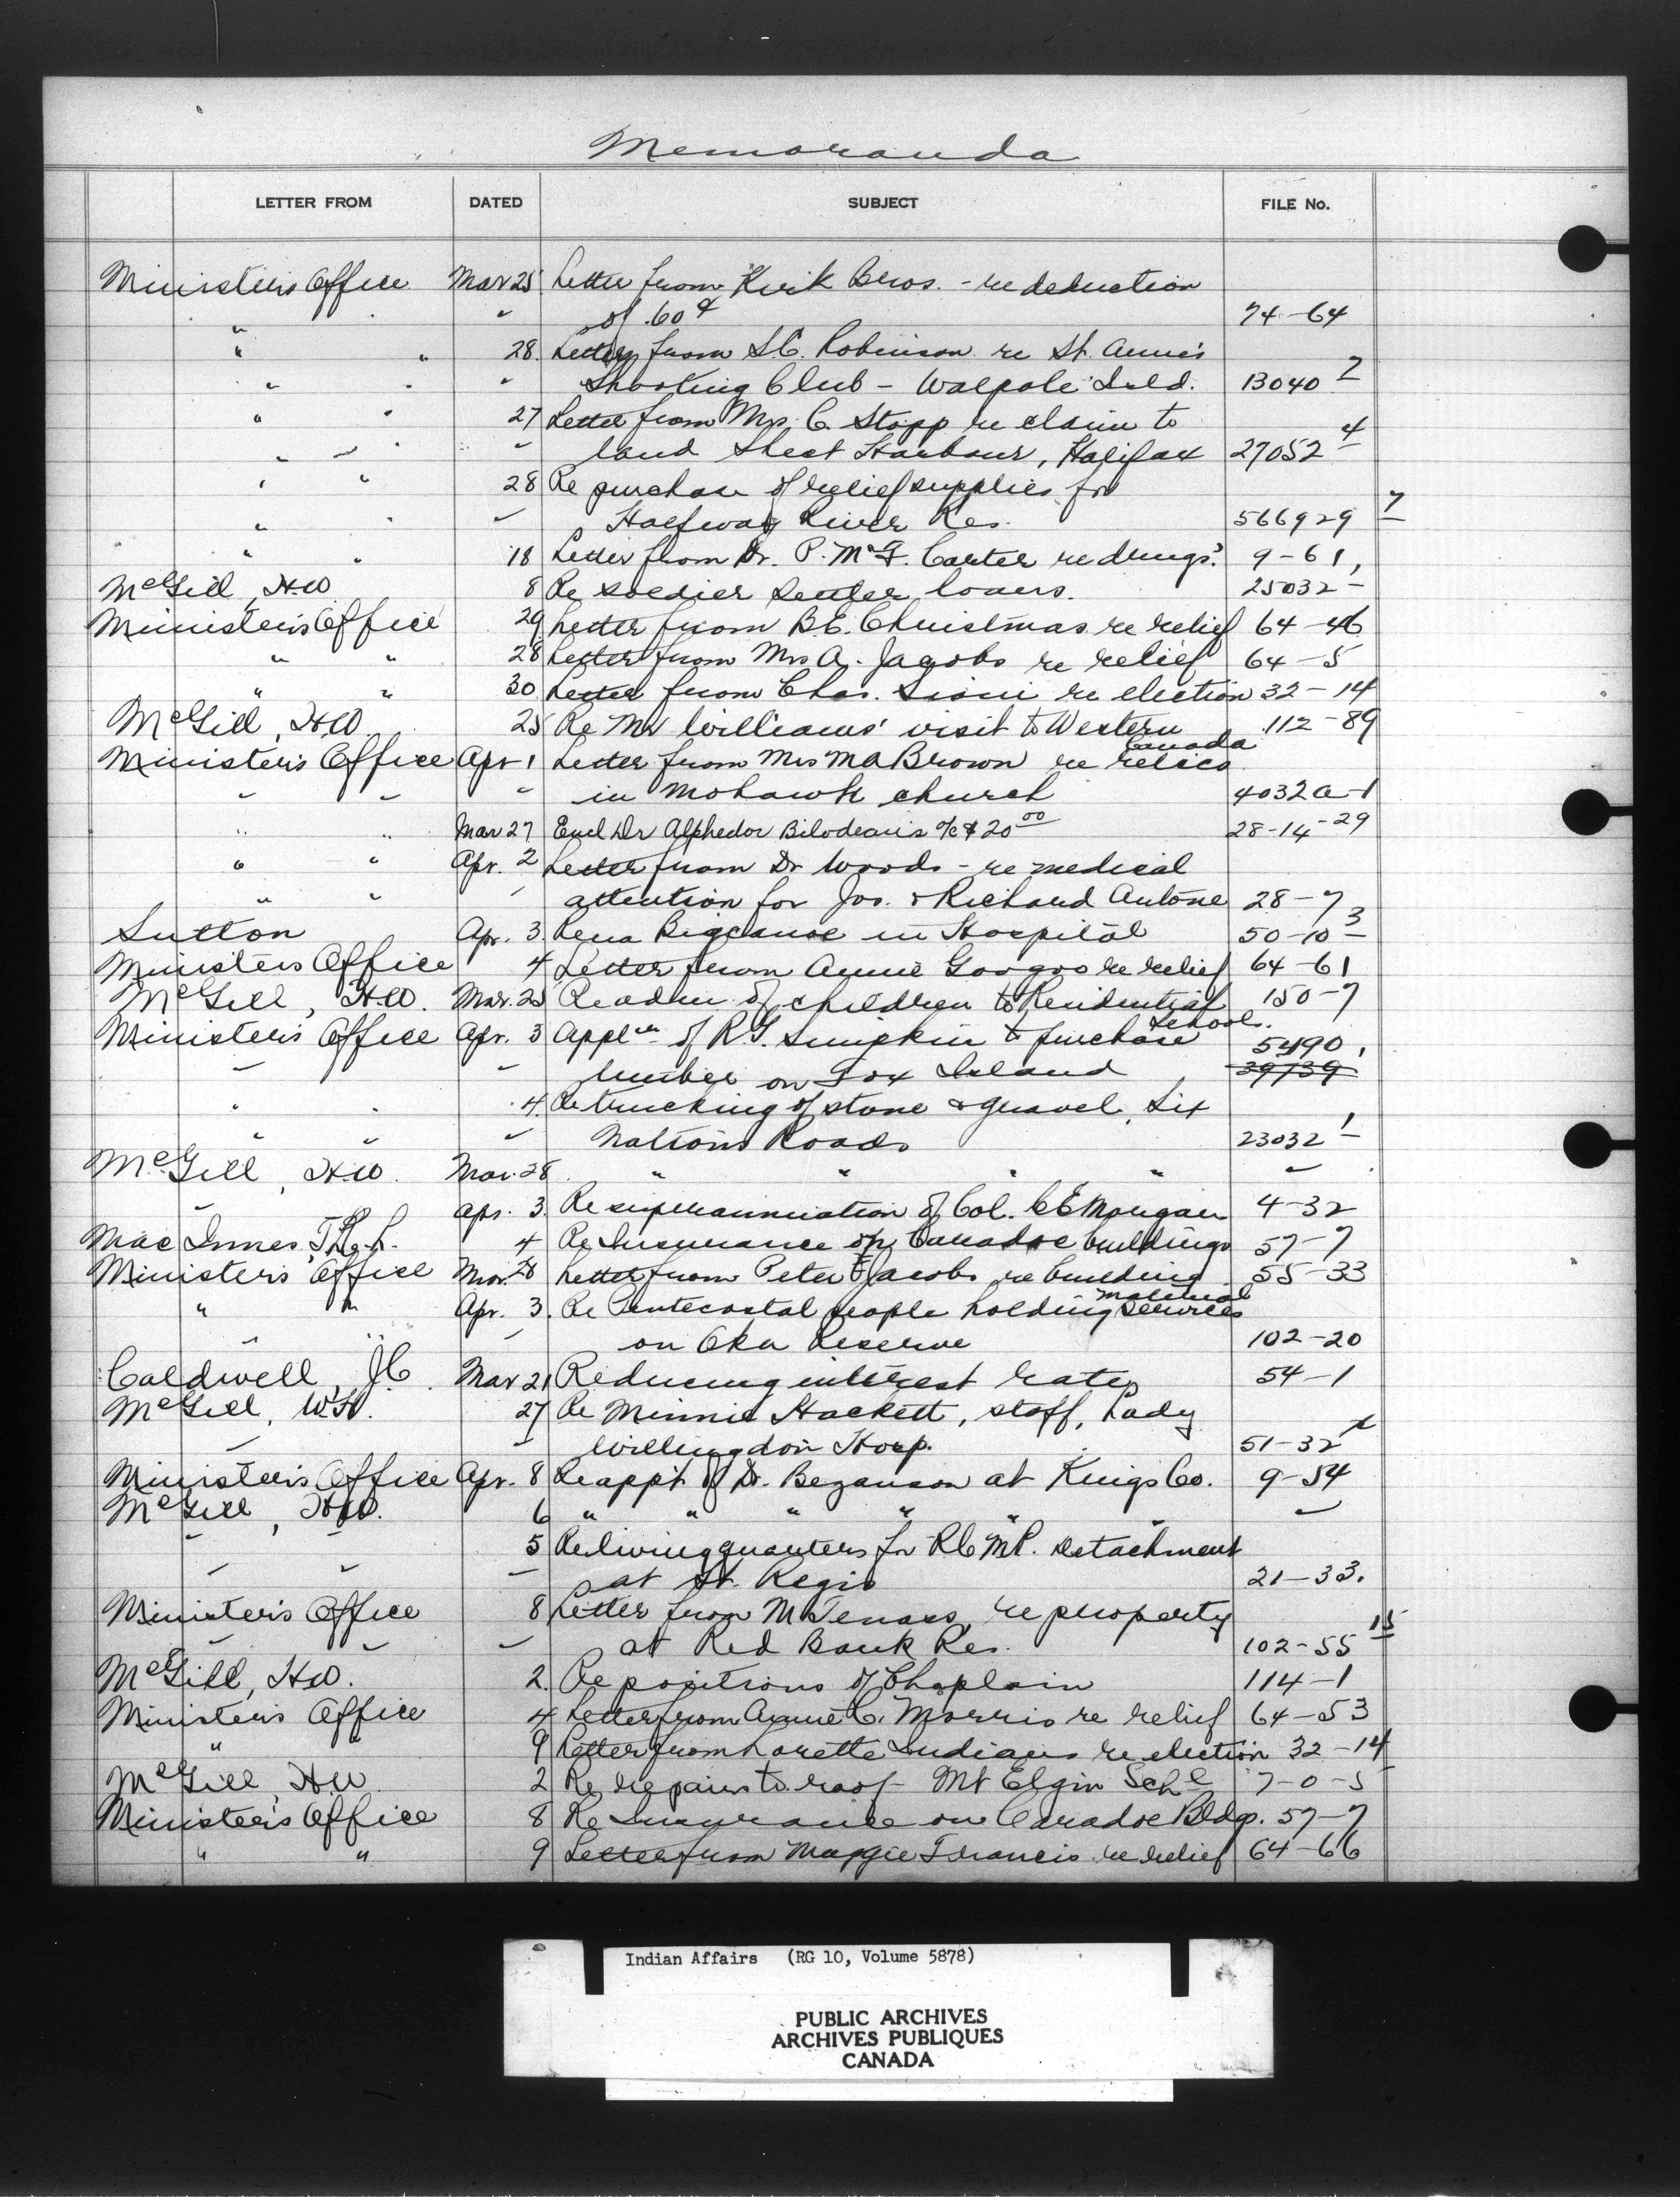 Memoranda
LETTER FROM DATED SUBJECT FILE No.
Minister's Office Mar 25 Letter from Kirk Bros. - re deduction
" " of .60¢ 74-64
" " 28. Letter from S.C. Robinson re St. Anne's
" " " Shooting Club - Walpole Isld. 13040-7
" " 27 Letter from Mrs. C. Stopp re claim to
" " " land Sheet Harbour, Halifax 27052-4
" " 28 Re purchase of relief supplies for
" " " Halfway River Res. 566929-7
" " 18 Letter from Dr. P. McF. Carter re drugs. 9-61,
McGill, H.W. 8 Re soldier settler loans. 25032-
Minister's Office 29 Letter from B.E. Christmas re relief 64-46
" " 28 Letter from Mrs A. Jacobs re relief 64-5
" " 30 Letter from Chas. Sioui re election 32-14
McGill, H.W. 25 Re Mr Williams' visit to Western 112-89
Canada
Minister's Office Apr 1 Letter from Mrs M A Brown re relics
" " " in Mohawk church 4032A-1
" " Mar 27 Encl Dr Alphedor Bilodeau's a/c $20 00 28-14-29
" " Apr. 2 Letter from Dr Woods - re medical
" " " attention for Jos. & Richard Antone 28-7
Sutton Apr. 3 Rena Bigcanoe in Hospital 50-10-3
Ministers Office 4 Letter from Annie Googoo re relief 64-61
McGill, H.W. Mar. 25 Re adm of children to Residential 150-7
Schools.
Minister's Office Apr. 3 Appl'n of R.G. Simpkin to purchase 5490,
" " timber on Fox Island 39739
" " 4 Re trucking of stone & gravel, Six
" " " Nations Roads 23032-1
McGill, H.W. Mar. 28 " " " " "
" Apr. 3. Re superannuation of Col. C E Morgan 4-32
MacInnes T.R.L. 4 Re Insurance on Caradoc buildings 57-7
Ministers Office Mar. 28 Letter from Peter F Jacobs re building 55-33
material
" " Apr. 3. Re Pentecostal people holding services
" " " on Oka Reserve 102-20
Caldwell, J.C. Mar 21 Reducing interest rates 54-1
McGill, W.H. 27 Re Minnie Hackett, staff, Lady
" " Willingdon Hosp. 51-32
Minister's Office Apr. 8 Re app't of Dr. Bezanson at Kings Co. 9-54
McGill, H.W. 6 " " " " " "
" " 5 Re living quarters for R.C.M.P. Detachment
" " " at St. Regis 21-33.
Minister's Office 8 Letter from M Tenass re property
" " " at Red Bank Res. 102-55-15
McGill, H.W. 2. Re positions of Chaplain 114-1
Minister's Office 4 Letter from Annie C. Morris re relief 64-53
" " 9 Letter from Lorette Indians re election 32-14
McGill, H.W. 2 Re repairs to roof Mt Elgin Schl 7-0-5
Minister's Office 8 Re Insurance on Caradoc Bldgs. 57-7
" " 9 Letter from Maggie Francis re relief 64-66
Indian Affairs (RG 10, Volume 5878)
PUBLIC ARCHIVES
ARCHIVES PUBLIQUES
CANADA